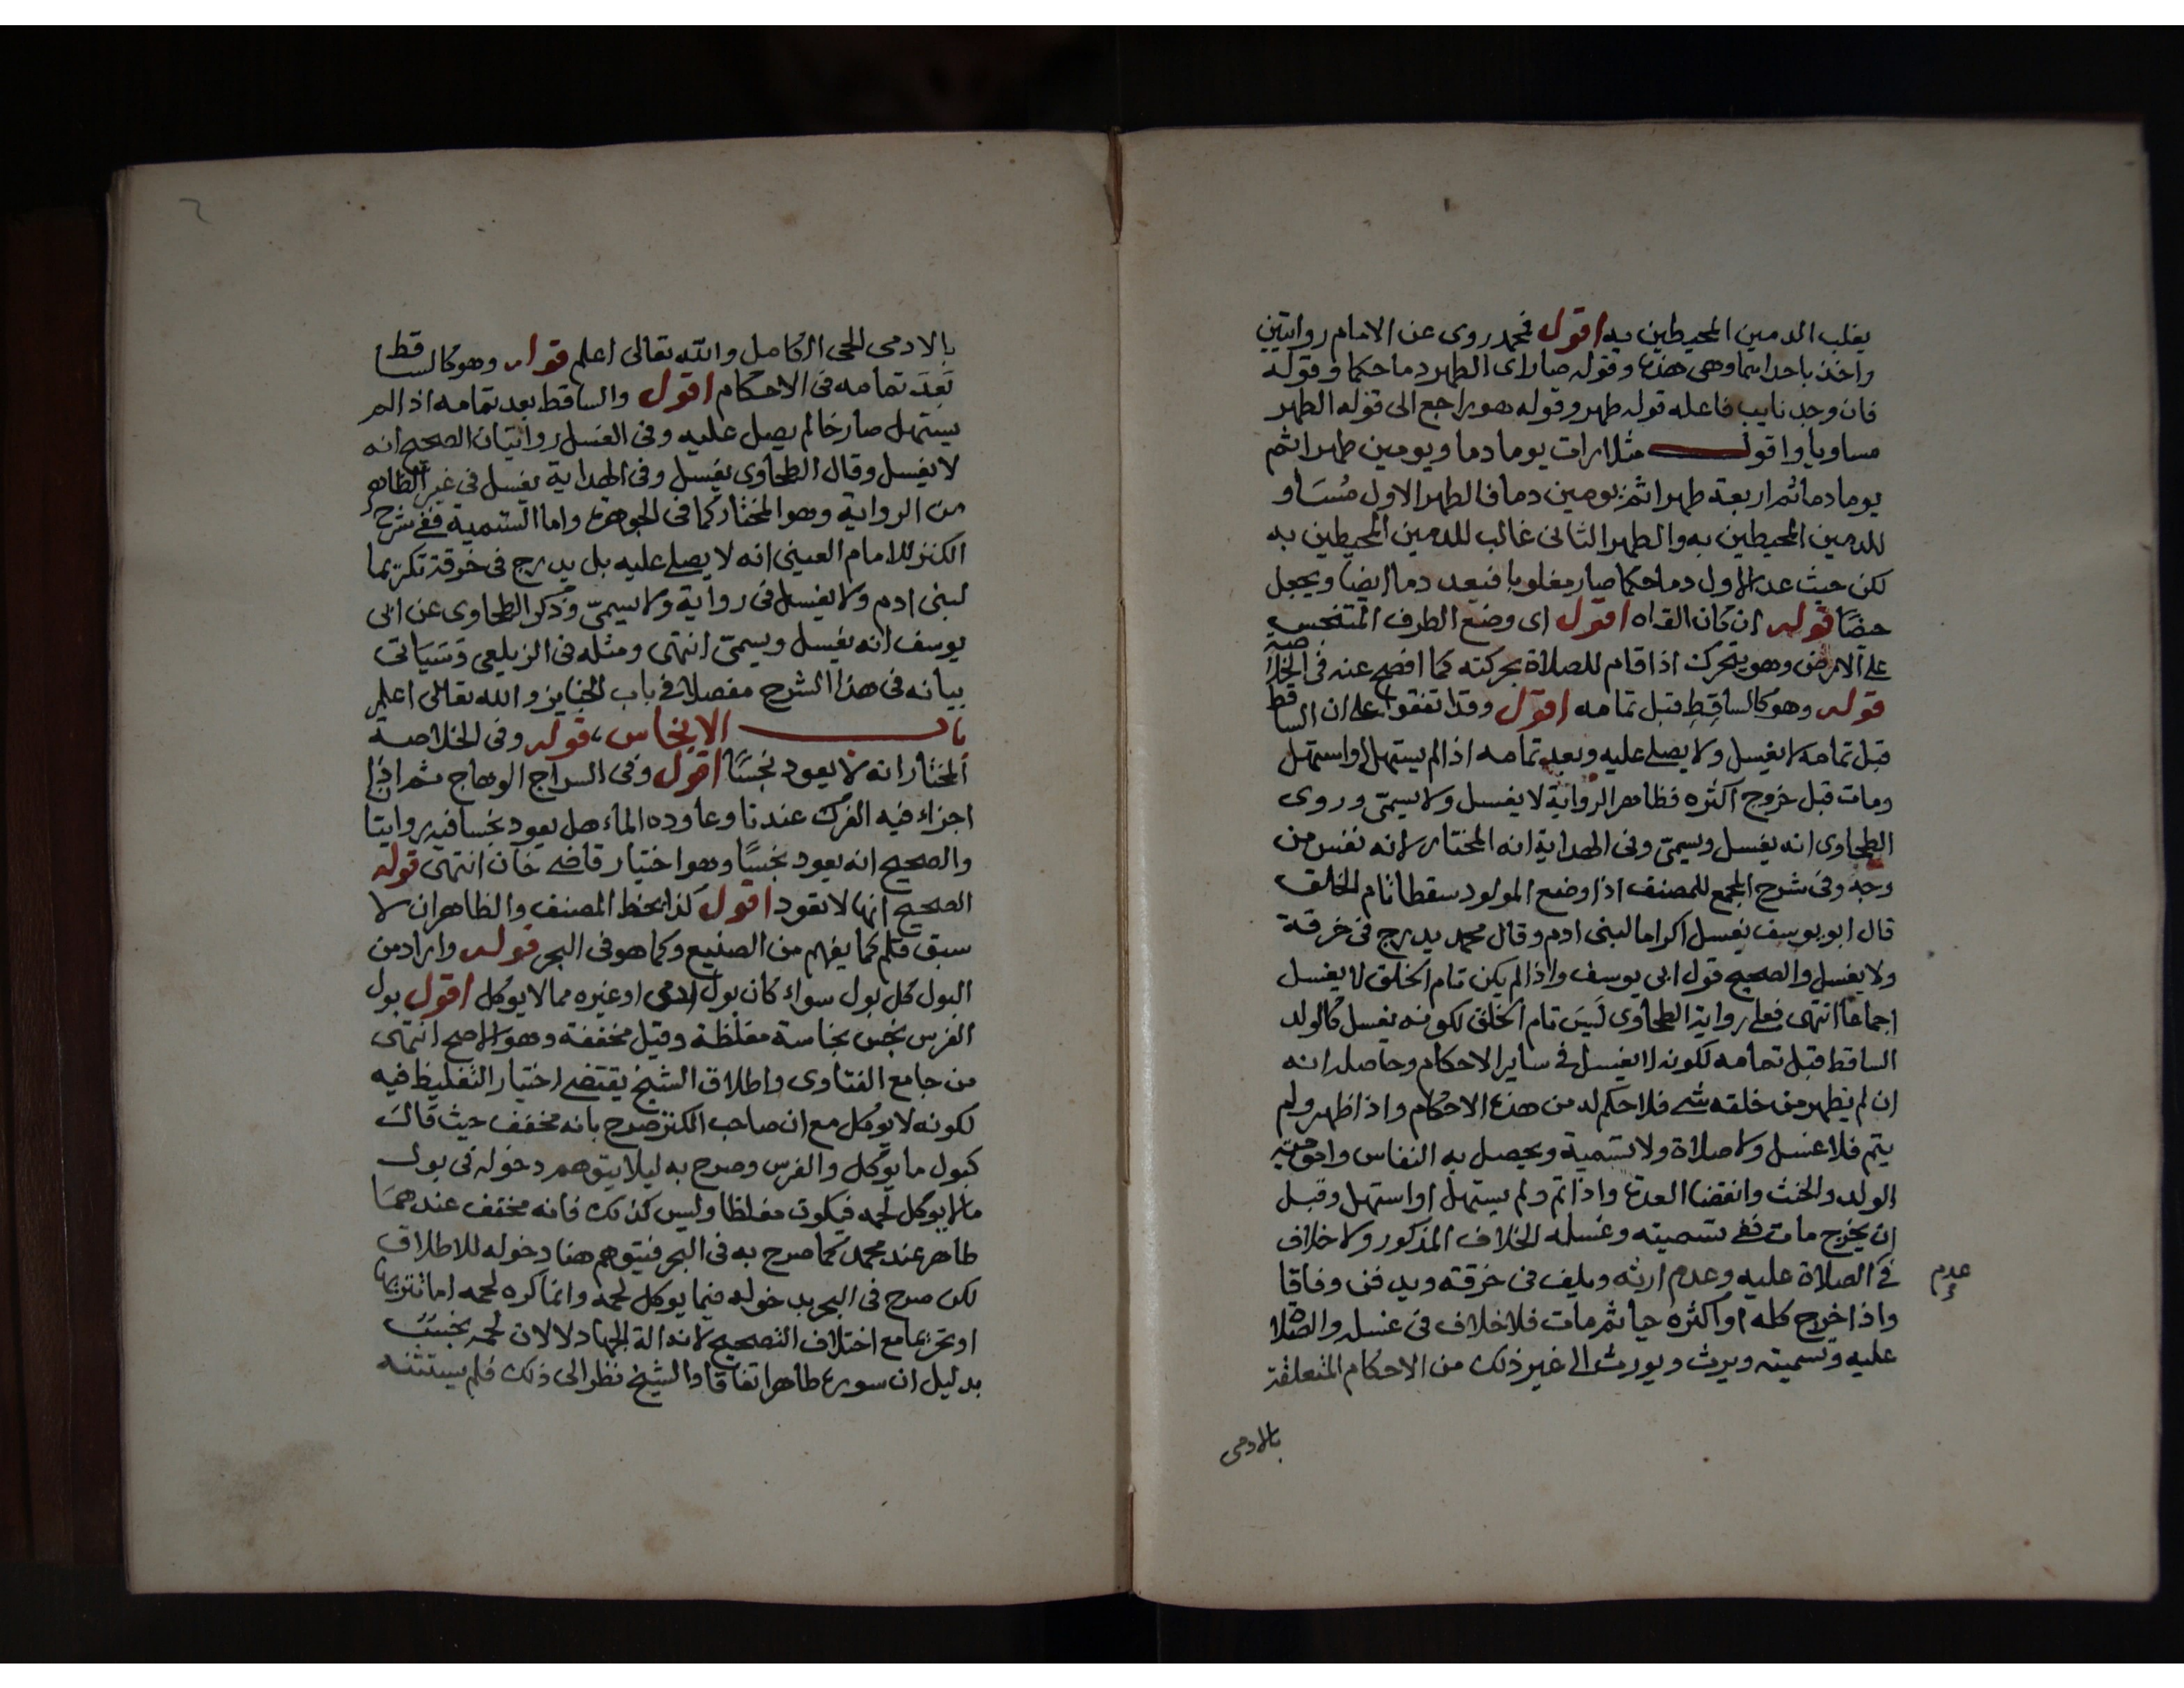 يغلب الدمين المحيطين به اقول فمحمد روى عن الامام روايتين
واخذ باحداهما وهى هذه وقوله صار اى الطهر دما حكما وقوله
فان وجد نايب فاعله قوله طهر وقوله هو راجع الى قوله الطهر
مساويا واقول مثلا رات يوما دما ويومين طهرا ثم
يوما دما ثم اربعة طهرا ثم يومين دما فالطهر الاول مساو
للدمين المحيطين به والطهر الثانى غالب للدمين المحيطين به
لكن حيث عد الاول دما حكما صار مغلوبا فيعد دما ايضا ويجعل
حيضا قوله ان كان القاه اقول اى وضع الطرف المتنجس
على الارض وهو يتحرك اذا قام للصلاة بحركته كما افصح عنه فى الخلاصة
قوله وهو كالساقط قبل تمامه اقول وقد اتفقوا على ان الساقط
قبل تمامه لا يغسل ولا يصلى عليه وبعد تمامه اذا لم يستهل او استهل
ومات قبل خروج اكثره فظاهر الرواية لا يغسل ولا يسمى وروى
الطحاوى انه يغسل ويسمى وفى الهداية انه المختار لانه نفس من
وجه وفى شرح المجمع للمصنف اذا وضع المولود سقطا تام الخلق
قال ابو يوسف يغسل اكراما لبنى ادم وقال محمد يدرج فى خرقة
ولا يغسل والصحيح قول ابى يوسف واذا لم يكن تام الخلق لا يغسل
اجماعا انتهى فعلى رواية الطحاوى ليس تام الخلق لكونه يغسل كالولد
الساقط قبل تمامه لكونه لا يغسل فى ساير الاحكام وحاصله انه
ان لم يظهر من خلقه شى فلا حكم له من هذه الاحكام واذا ظهر ولم
يتم فلا غسل ولا صلاة ولا تسمية ويحصل به النفاس وامومية
الولد والحنث وانقضا العدة واذا تم ولم يستهل او استهل وقبل
ان يخرج مات ففى تسميته وغسله الخلاف المذكور ولا خلاف
فى الصلاة عليه وعدم ارثه ويلف فى خرقته ويدفن وفاقا
عدم
واذا خرج كله او اكثره حيا ثم مات فلا خلاف فى غسله والصلاة
عليه وتسميته ويرث ويورث الى غير ذلك من الاحكام المتعلقة
بالادمى
٢
بالادمى الحى الكامل والله تعالى اعلم قوله وهو كالساقط
بعد تمامه فى الاحكام اقول والساقط بعد تمامه اذا لم
يستهل صارخا لم يصل عليه وفى الغسل روايتان الصحيح انه
لا يغسل وقال الطحاوى يغسل وفى الهداية يغسل فى غير الظاهر
من الرواية وهو المختار كما فى الجوهرة واما التسمية ففى شرح
الكنز للامام العينى انه لا يصلى عليه بل يدرج فى خرقة تكريما
لبنى ادم ولا يغسل فى رواية ولا يسمى وذكر الطحاوى عن ابى
يوسف انه يغسل ويسمى انتهى ومثله فى الزيلعى وسياتى
بيانه فى هذا الشرح مفصلا فى باب الجنايز والله تعالى اعلم
باب الانجاس، قوله وفى الخلاصة
المختار انه لا يعود نجسا اقول وفى السراج الوهاج ثم اذا
اجزاء فيه الفرك عندنا وعاوده الماء هل يعود نجسا فيه روايتا
والصحيح انه يعود نجسا وهو اختيار قاضى خان انتهى قوله
الصحيح انها لا تعود اقول كذا بخط المصنف والظاهر ان لا
سبق قلم كما يفهم من الصنيع وكما هو فى البحر قوله واراد من
البول كل بول سواء كان بول ادمى او غيره مما لا يوكل اقول بول
الفرس نجس نجاسة مغلظة وقيل مخففة وهو الاصح انتهى
من جامع الفتاوى واطلاق الشيخ يقتضى اختيار التغليظ فيه
لكونه لا يوكل مع ان صاحب الكنز صرح بانه مخفف حيث قال
كبول ما يوكل والفرس وصرح به ليلا يتوهم دخوله فى بول
مالا يوكل لحمه فيكون مغلظا وليس كذلك فانه مخفف عندهما
طاهر عند محمد كما صرح به فى البحر فيتوهم هنا دخوله للاطلاق
لكن صرح فى البحر بدخوله فيما يوكل لحمه وانما كره لحمه اما تنزيها
او تحريما مع اختلاف التصحيح لانه الة الجهاد لا لان لحمه نجس
بدليل ان سوره طاهر اتفاقا والشيخ نظر الى ذلك فلم يستثنه